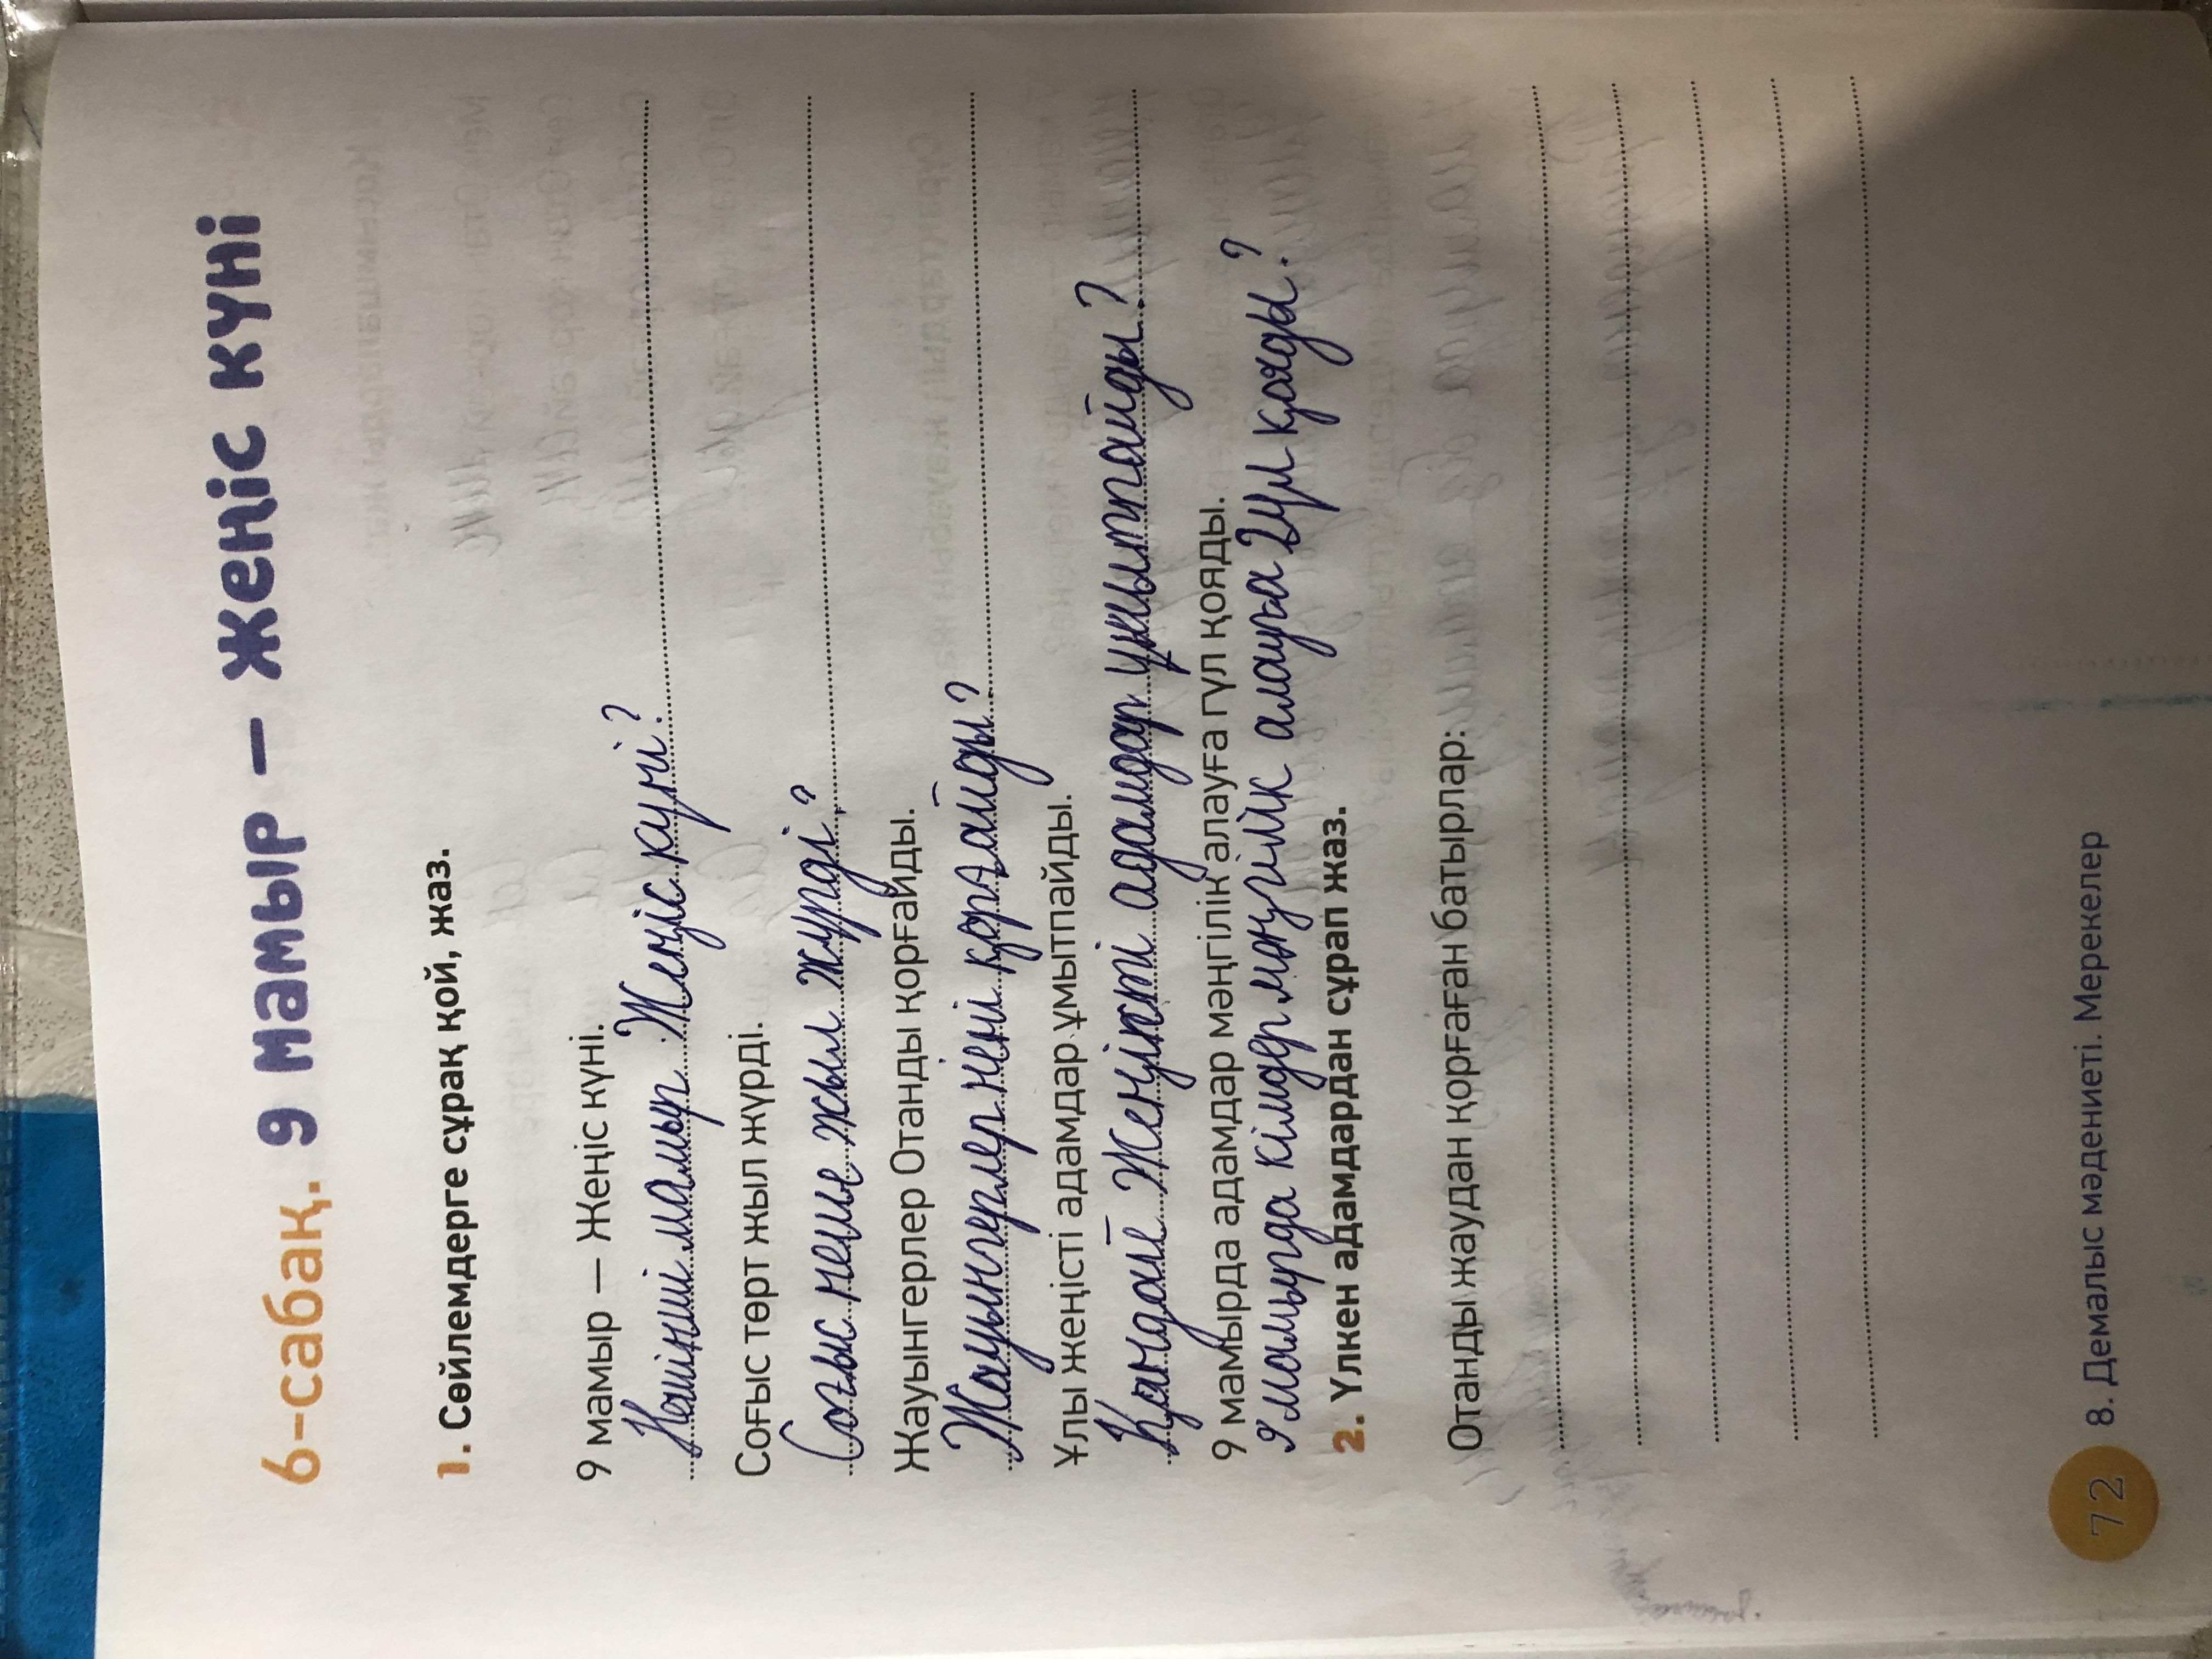 6-сабақ. 9 мамыр – Жеңіс күні
1. Сөйлемдерге сұрақ қой, жаз.
9 мамыр — Жеңіс күні.
Нешінші мамыр Жеңіс күні?
Соғыс төрт жыл жүрді.
Соғыс неше жыл жүрді?
Жауынгерлер Отанды қорғайды.
Жауынгерлер нені қорғайды?
Ұлы жеңісті адамдар ұмытпайды.
Қандай Жеңісті адамдар ұмытпайды?
9 мамырда адамдар мәңгілік алауға гүл қояды.
9 мамырда кімдер мәңгілік алауға гүл қояды?
2. Үлкен адамдардан сұрап жаз.
Отанды жаудан қорғаған батырлар:
72 8. Демалыс мәдениеті. Мерекелер